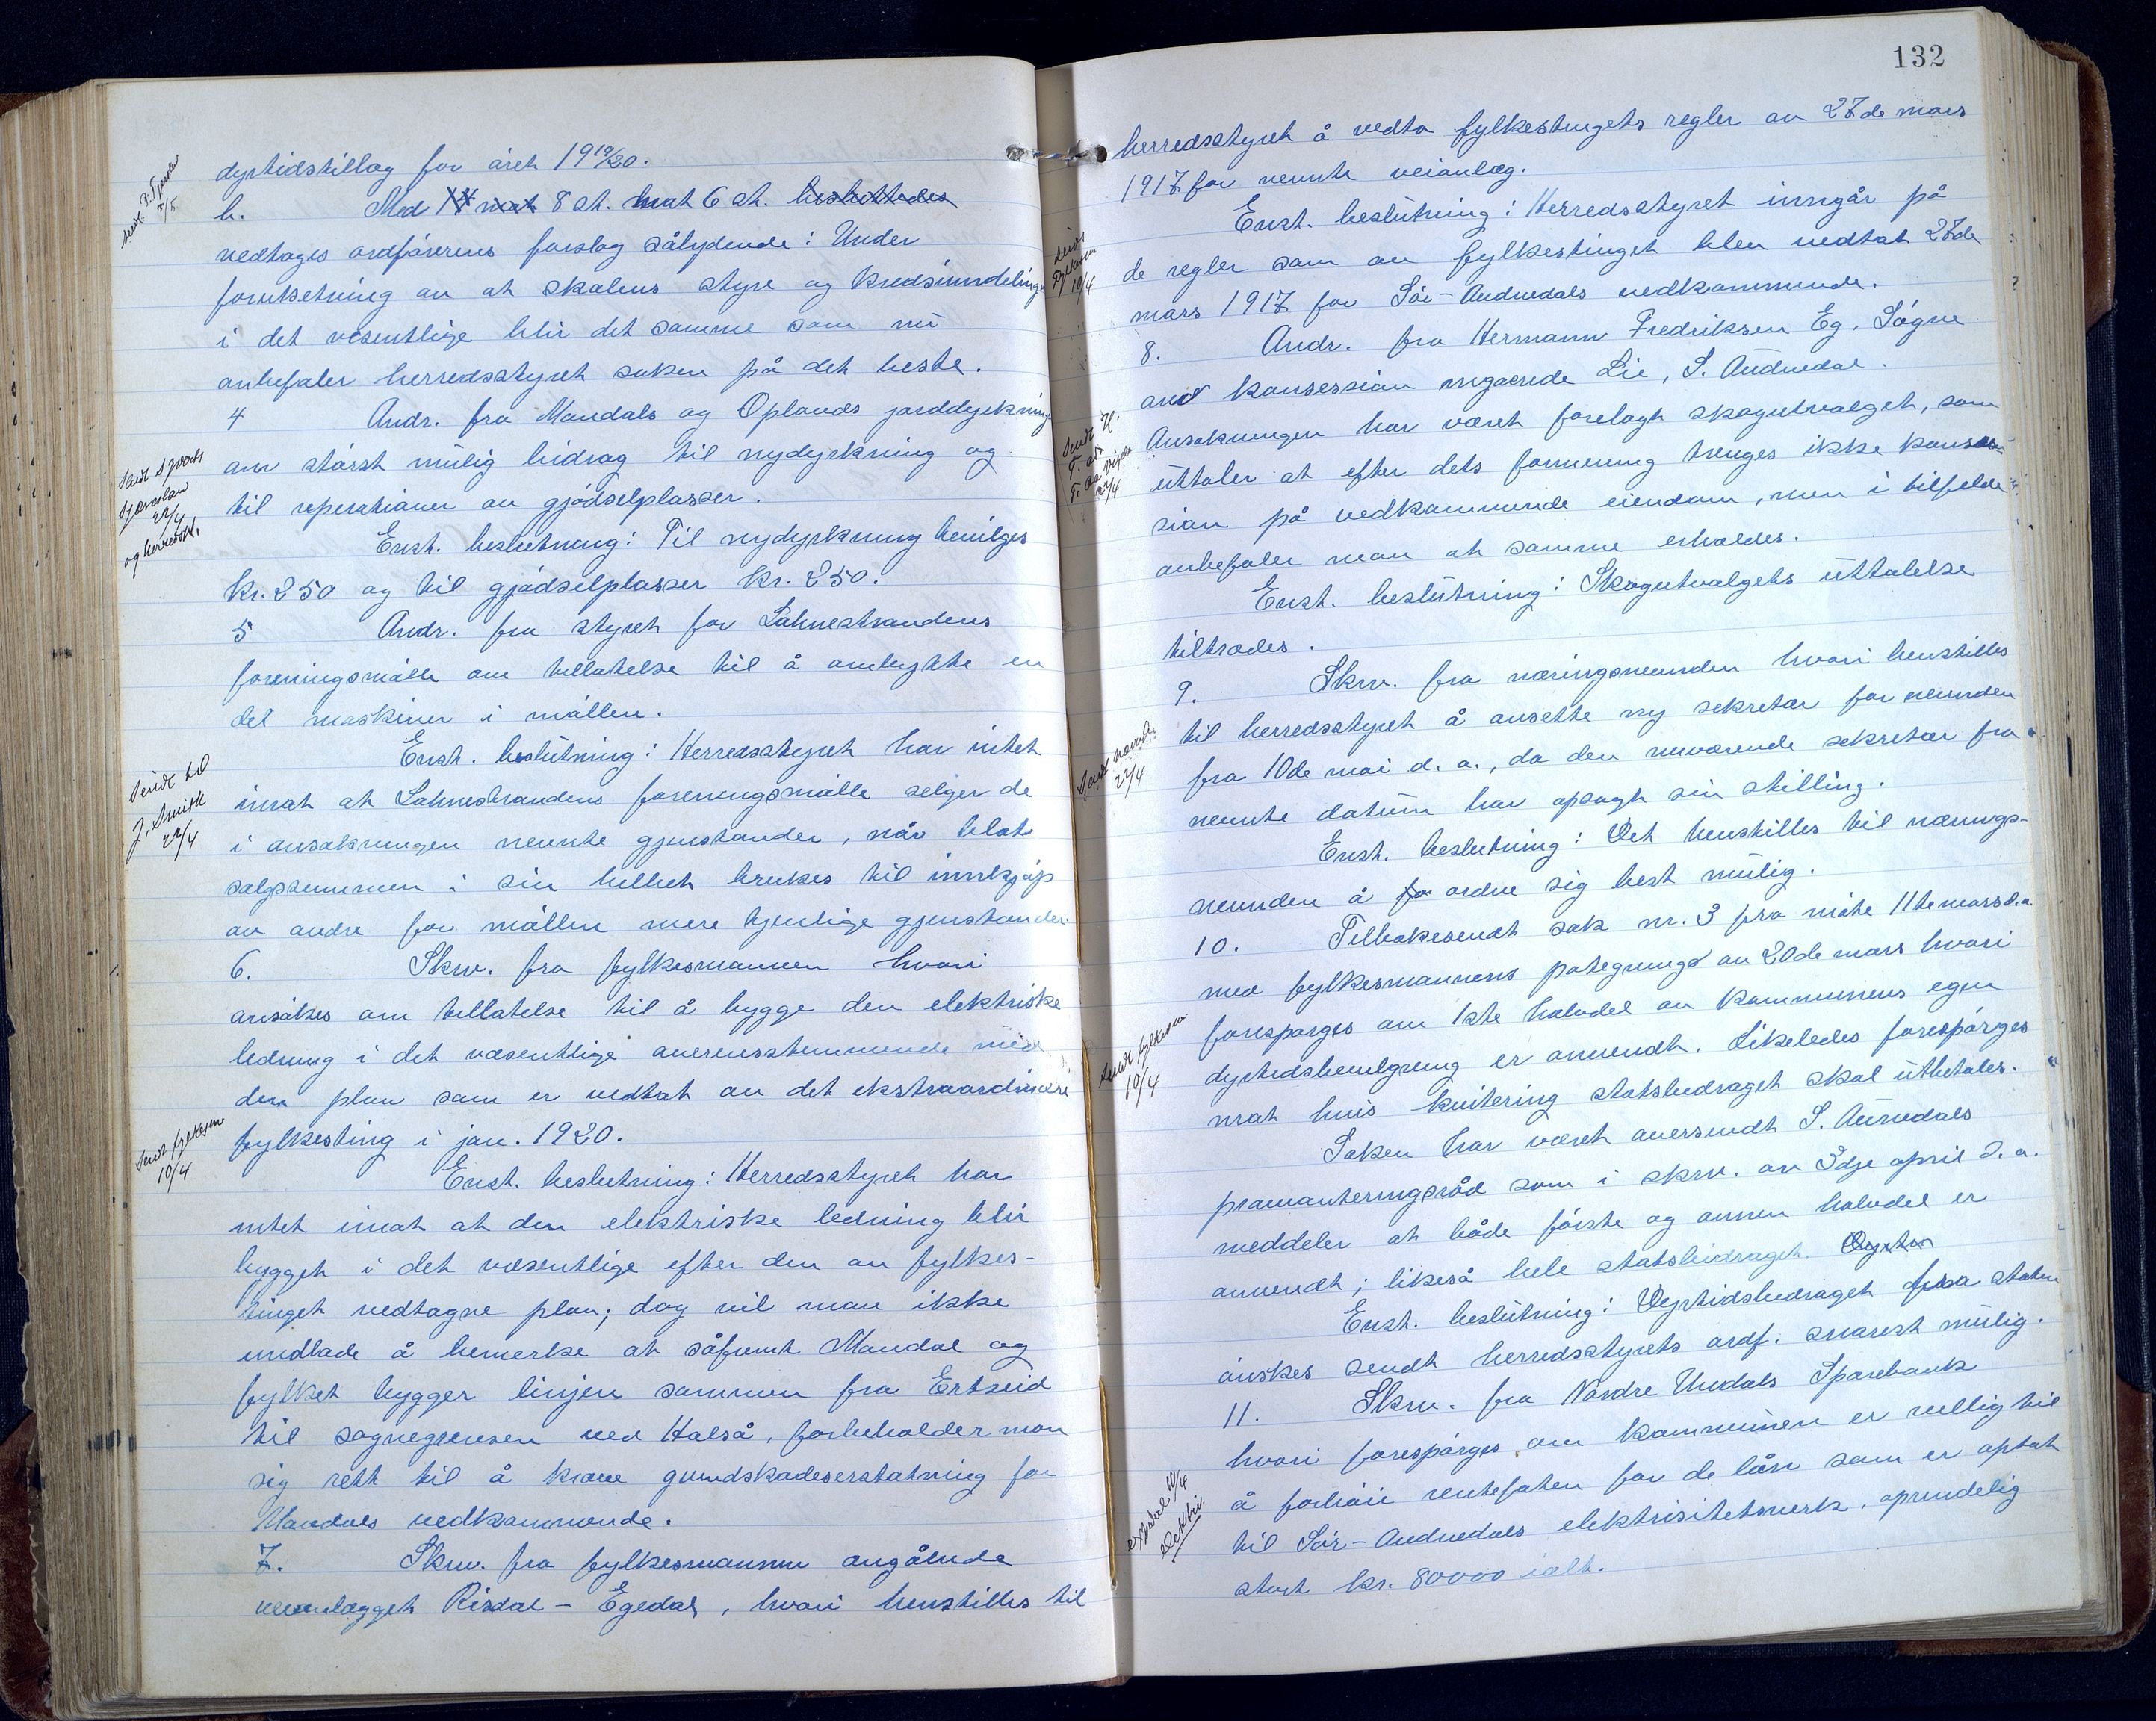 dyrtidstillæg for året 19 19/20.
b. Med 14 mot 8 st. mot 6 st. besluttedes
vedtages ordførerens forslag sålydende: Under
forutsetning av at skolens styre og kredsinndeling
i det vesentlige blir det samme som nu
anbefaler herredsstyret saken på det beste.
4 Andr. fra Mandals og Oplands jorddyrkning
om størst mulig bidrag til nydyrkning og
til reperationer av gjødselplasser.
Enst. beslutning: Til nydyrkning bevilges
kr. 250 og til gjødselplasser kr. 250.
5 Andr. fra styret for Lahnestrandens
foreningsmølle om tillatelse til å ombytte en
del maskiner i møllen.
Enst. beslutning: Herredsstyret har intet
imot at Lahnestrandens foreningsmølle selger de
i ansøkningen nevnte gjenstander, når blot
salgssummen i sin helhet brukes til innkjøp
av andre for møllen mere tjenlige gjenstander.
6. Skrv. fra fylkesmannen hvori
ansøkes om tillatelse til å bygge den elektriske
ledning i det væsentlige overensstemmende med
den plan som er vedtat av det ekstraordinære
fylkesting i jan. 1920.
Enst. beslutning: Herredsstyret har
intet imot at den elektriske ledning blir
bygget i det væsentlige efter den av fylkes-
tinget vedtagne plan; dog vil man ikke
undlade å bemerke at såfremt Mandal og
fylket bygger linjen sammen fra Ertzeid
til sognegrensen ved Halså, forbeholder man
sig rett til å kræve grundskadeserstatning for
Mandals vedkommende.
7. Skrv. fra fylkesmannen angående
veianlægget Risdal - Egedal, hvori henstilles til
Sendt til
J. Smith
22/4
10/4
132
herredsstyret å vedta fylkestingets regler av 27de mars
1917 for nevnte veianlæg.
Enst. beslutning: Herredsstyret inngår på
de regler som av fylkestinget blev vedtat 27de
mars 1917 for Sør-Audnedals vedkommende.
8. Andr. fra Hermann Fredriksen Eg. Søgne
om konsession angaaende Lie, S. Audnedal.
Ansøkningen har været forelagt skogutvalget, som
uttaler at efter dets formening trenges ikke konses-
sion på vedkommende eiendom, men i tilfelde
anbefaler man at samme erholdes.
Enst. beslutning: Skogutvalgets uttalelse
tiltrædes.
9. Skrv. fra næringsnevnden hvori henstilles
til herredsstyret å ansette ny sekretær for nevnden
fra 10de mai d. a., da den nuværende sekretær fra
nevnte datum har opsagt sin stilling.
Enst. beslutning: Det henstilles til nærings-
nevnden å få ordne sig best mulig.
10. Tilbakesendt sak nr. 3 fra møte 11te mars d.a.
med fylkesmannens påtegning av 20de mars hvori
forespørges om 1ste halvdel av kommunens egen
dyrtidsbevilgning er anvendt. Likeledes forespørges
mot hvis kvitering statsbidraget skal utbetales.
Saken har været oversendt S. Audnedals
provianteringsråd som i skrv. av 3dje april d. a.
meddeler at både første og annen halvdel er
anvendt; likeså hele statsbidraget.
Enst. beslutning: Dyrtidsbidraget fra staten
ønskes sendt herredsstyrets ordf. snarest mulig.
11. Skrv. fra Nordre Undals Sparebank
hvori forespørges om kommunen er villig til
å forhøie rentefoten for de lån som er optat
til Sør-Audnedals elektrisitetsverk, oprindelig
stort kr. 80000 ialt.
10/4
22/4
22/4
10/4